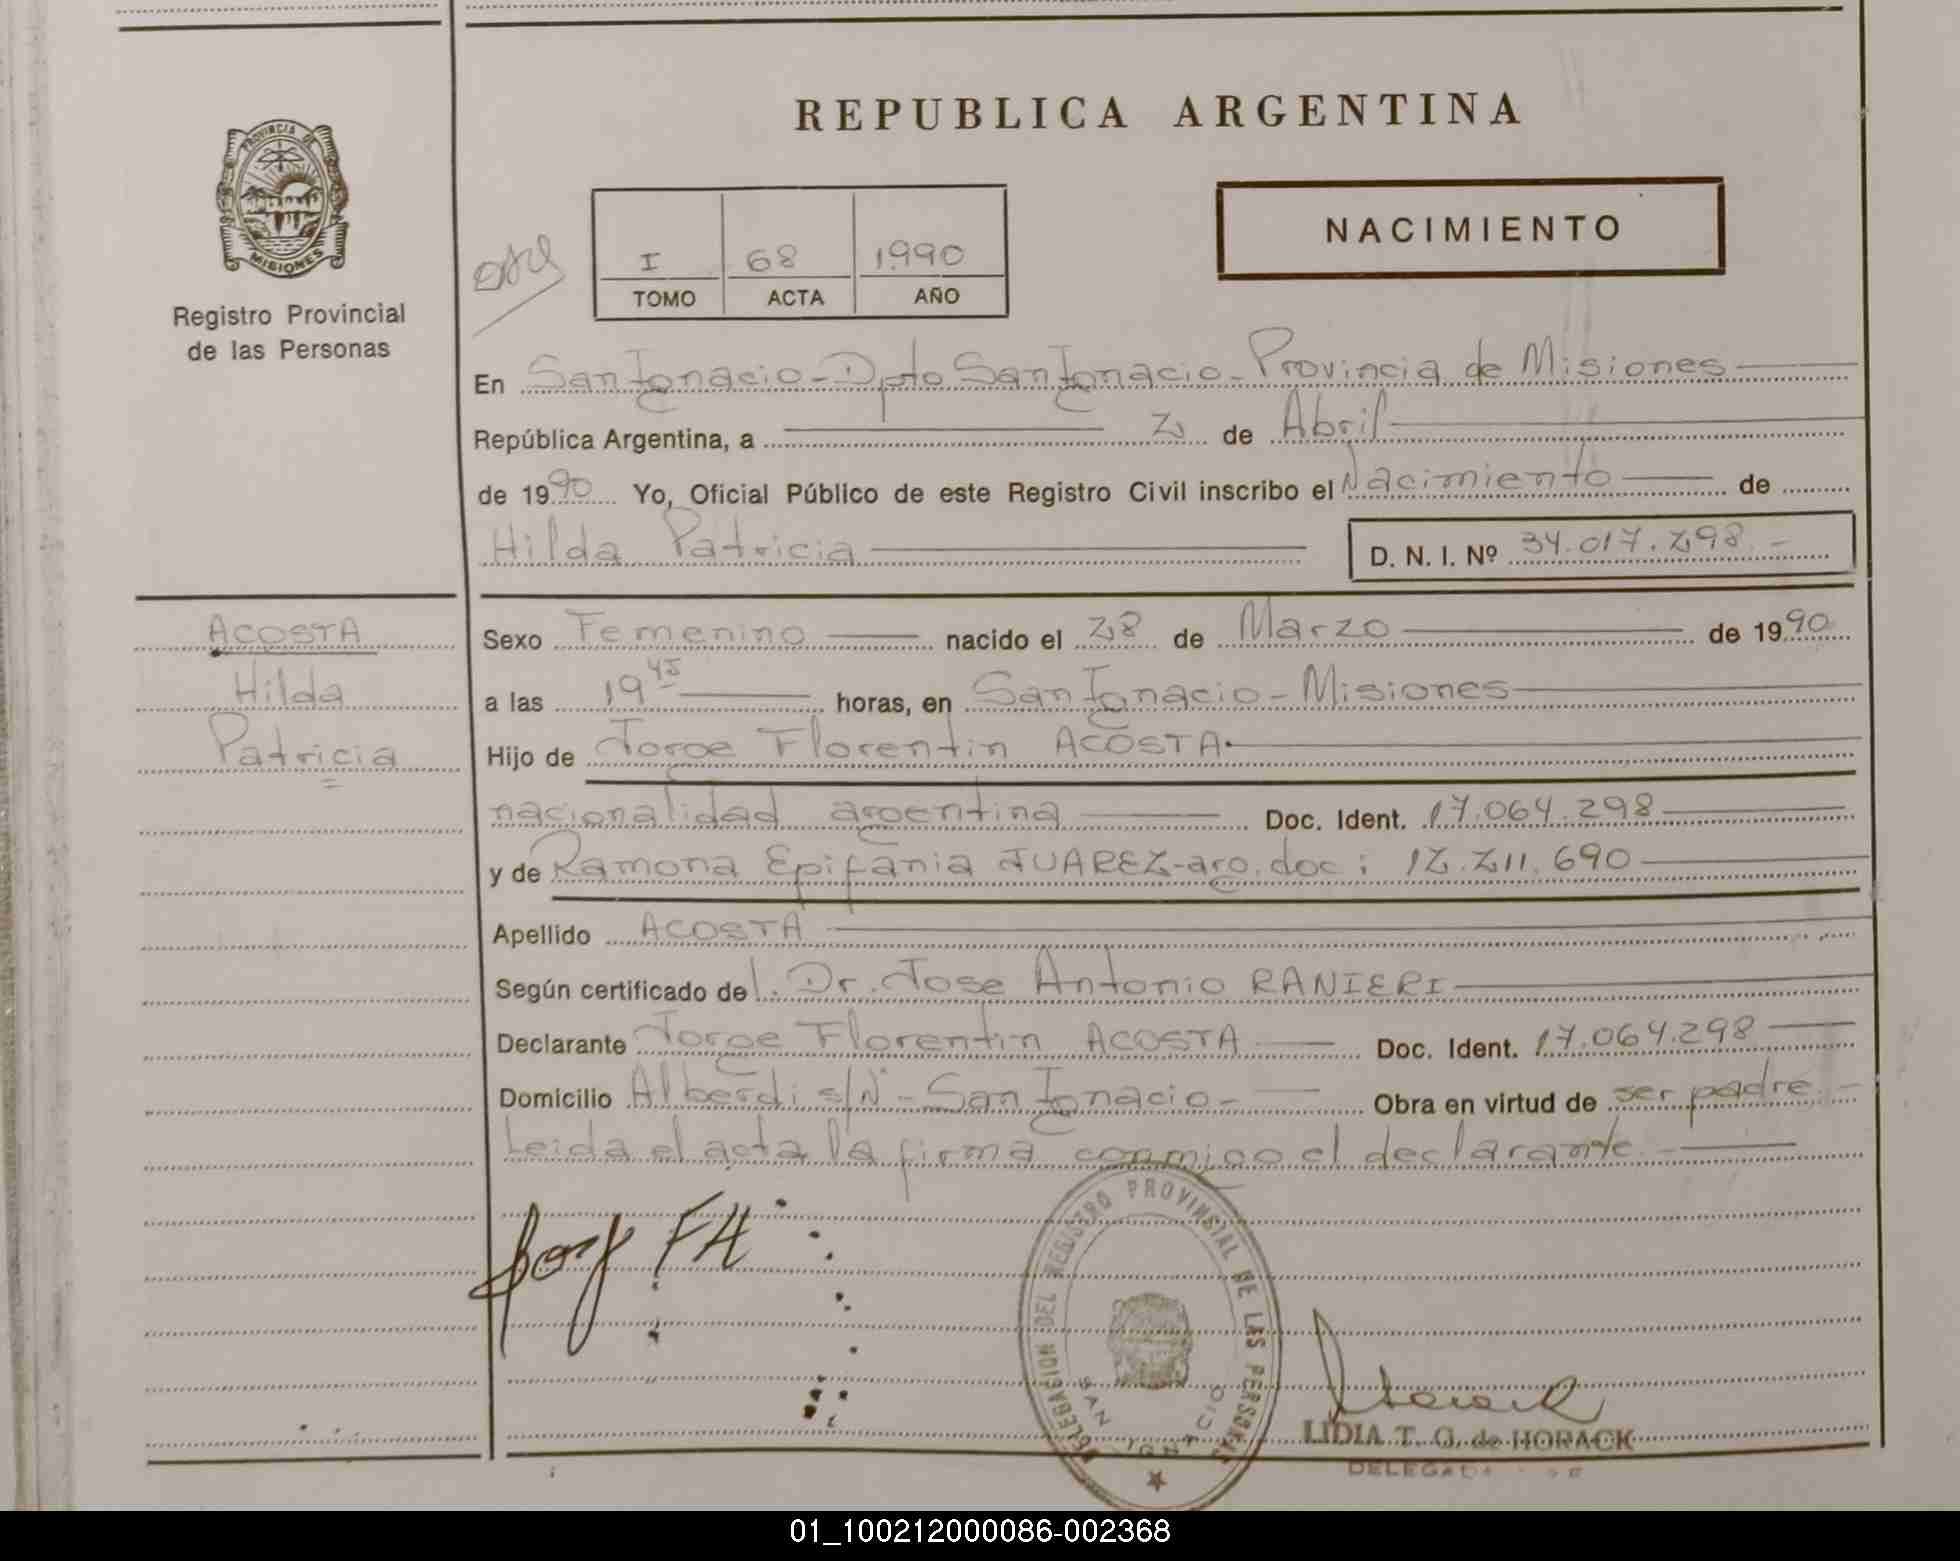 REPUBLICA ARGENTINA
PROVINCIA DE
MISIONES
Registro Provincial
de las Personas
NACIMIENTO
I 68 1990
TOMO ACTA AÑO
En San Ignacio - Dpto San Ignacio - Provincia de Misiones
República Argentina, a 2 de Abril
de 1990 Yo, Oficial Público de este Registro Civil inscribo el Nacimiento de
Hilda Patricia D. N. I. Nº 34.017.298.-
ACOSTA
Hilda
Patricia
Sexo Femenino nacido el 28 de Marzo de 1990
a las 19 45 horas, en San Ignacio - Misiones
Hijo de Jorge Florentin ACOSTA
nacionalidad argentina Doc. Ident. 17.064.298
y de Ramona Epifania JUAREZ - arg. doc: 12.211.690
Apellido ACOSTA
Según certificado del. Dr. Jose Antonio RANIERI
Declarante Jorge Florentin ACOSTA Doc. Ident. 17.064.298
Domicilio Alberdi s/Nº - San Ignacio - Obra en virtud de ser padre.-
Leida el acta la firma conmigo el declarante.-
DELEGACION DEL REGISTRO PROVINSIAL DE LAS PERSONAS
SAN IGNACIO
LIDIA T. G. de HORACK
DELEGADA
01_100212000086-002368